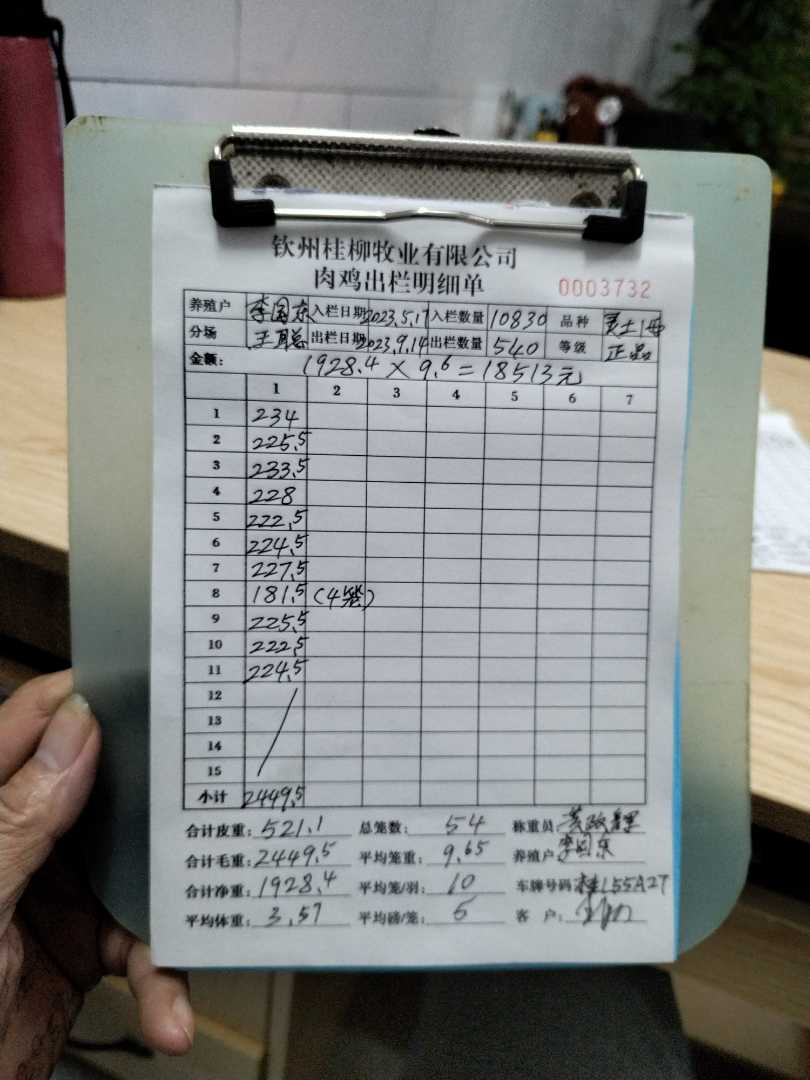 钦州桂柳牧业有限公司
肉鸡出栏明细单
0003732
养殖户 李国东 入栏日期 2023.5.17 入栏数量 10830 品种
分场 王聪 出栏日期 2023.9.14 出栏数量 540 等级 正品
金额: 1928.4 × 9.6 = 18513元
1 2 3 4 5 6 7
1 234
2 225.5
3 233.5
4 228
5 222.5
6 224.5
7 227.5
8 181.5 (4笼)
9 225.5
10 222.5
11 224.5
12
13
14
15
小计 2449.5
合计皮重: 521.1 总笼数: 54 称重员:
合计毛重: 2449.5 平均笼重: 9.65 养殖户: 李国东
合计净重: 1928.4 平均笼/羽: 10 车牌号码: 桂L55A27
平均体重: 3.57 平均磅/笼: 5 客 户: